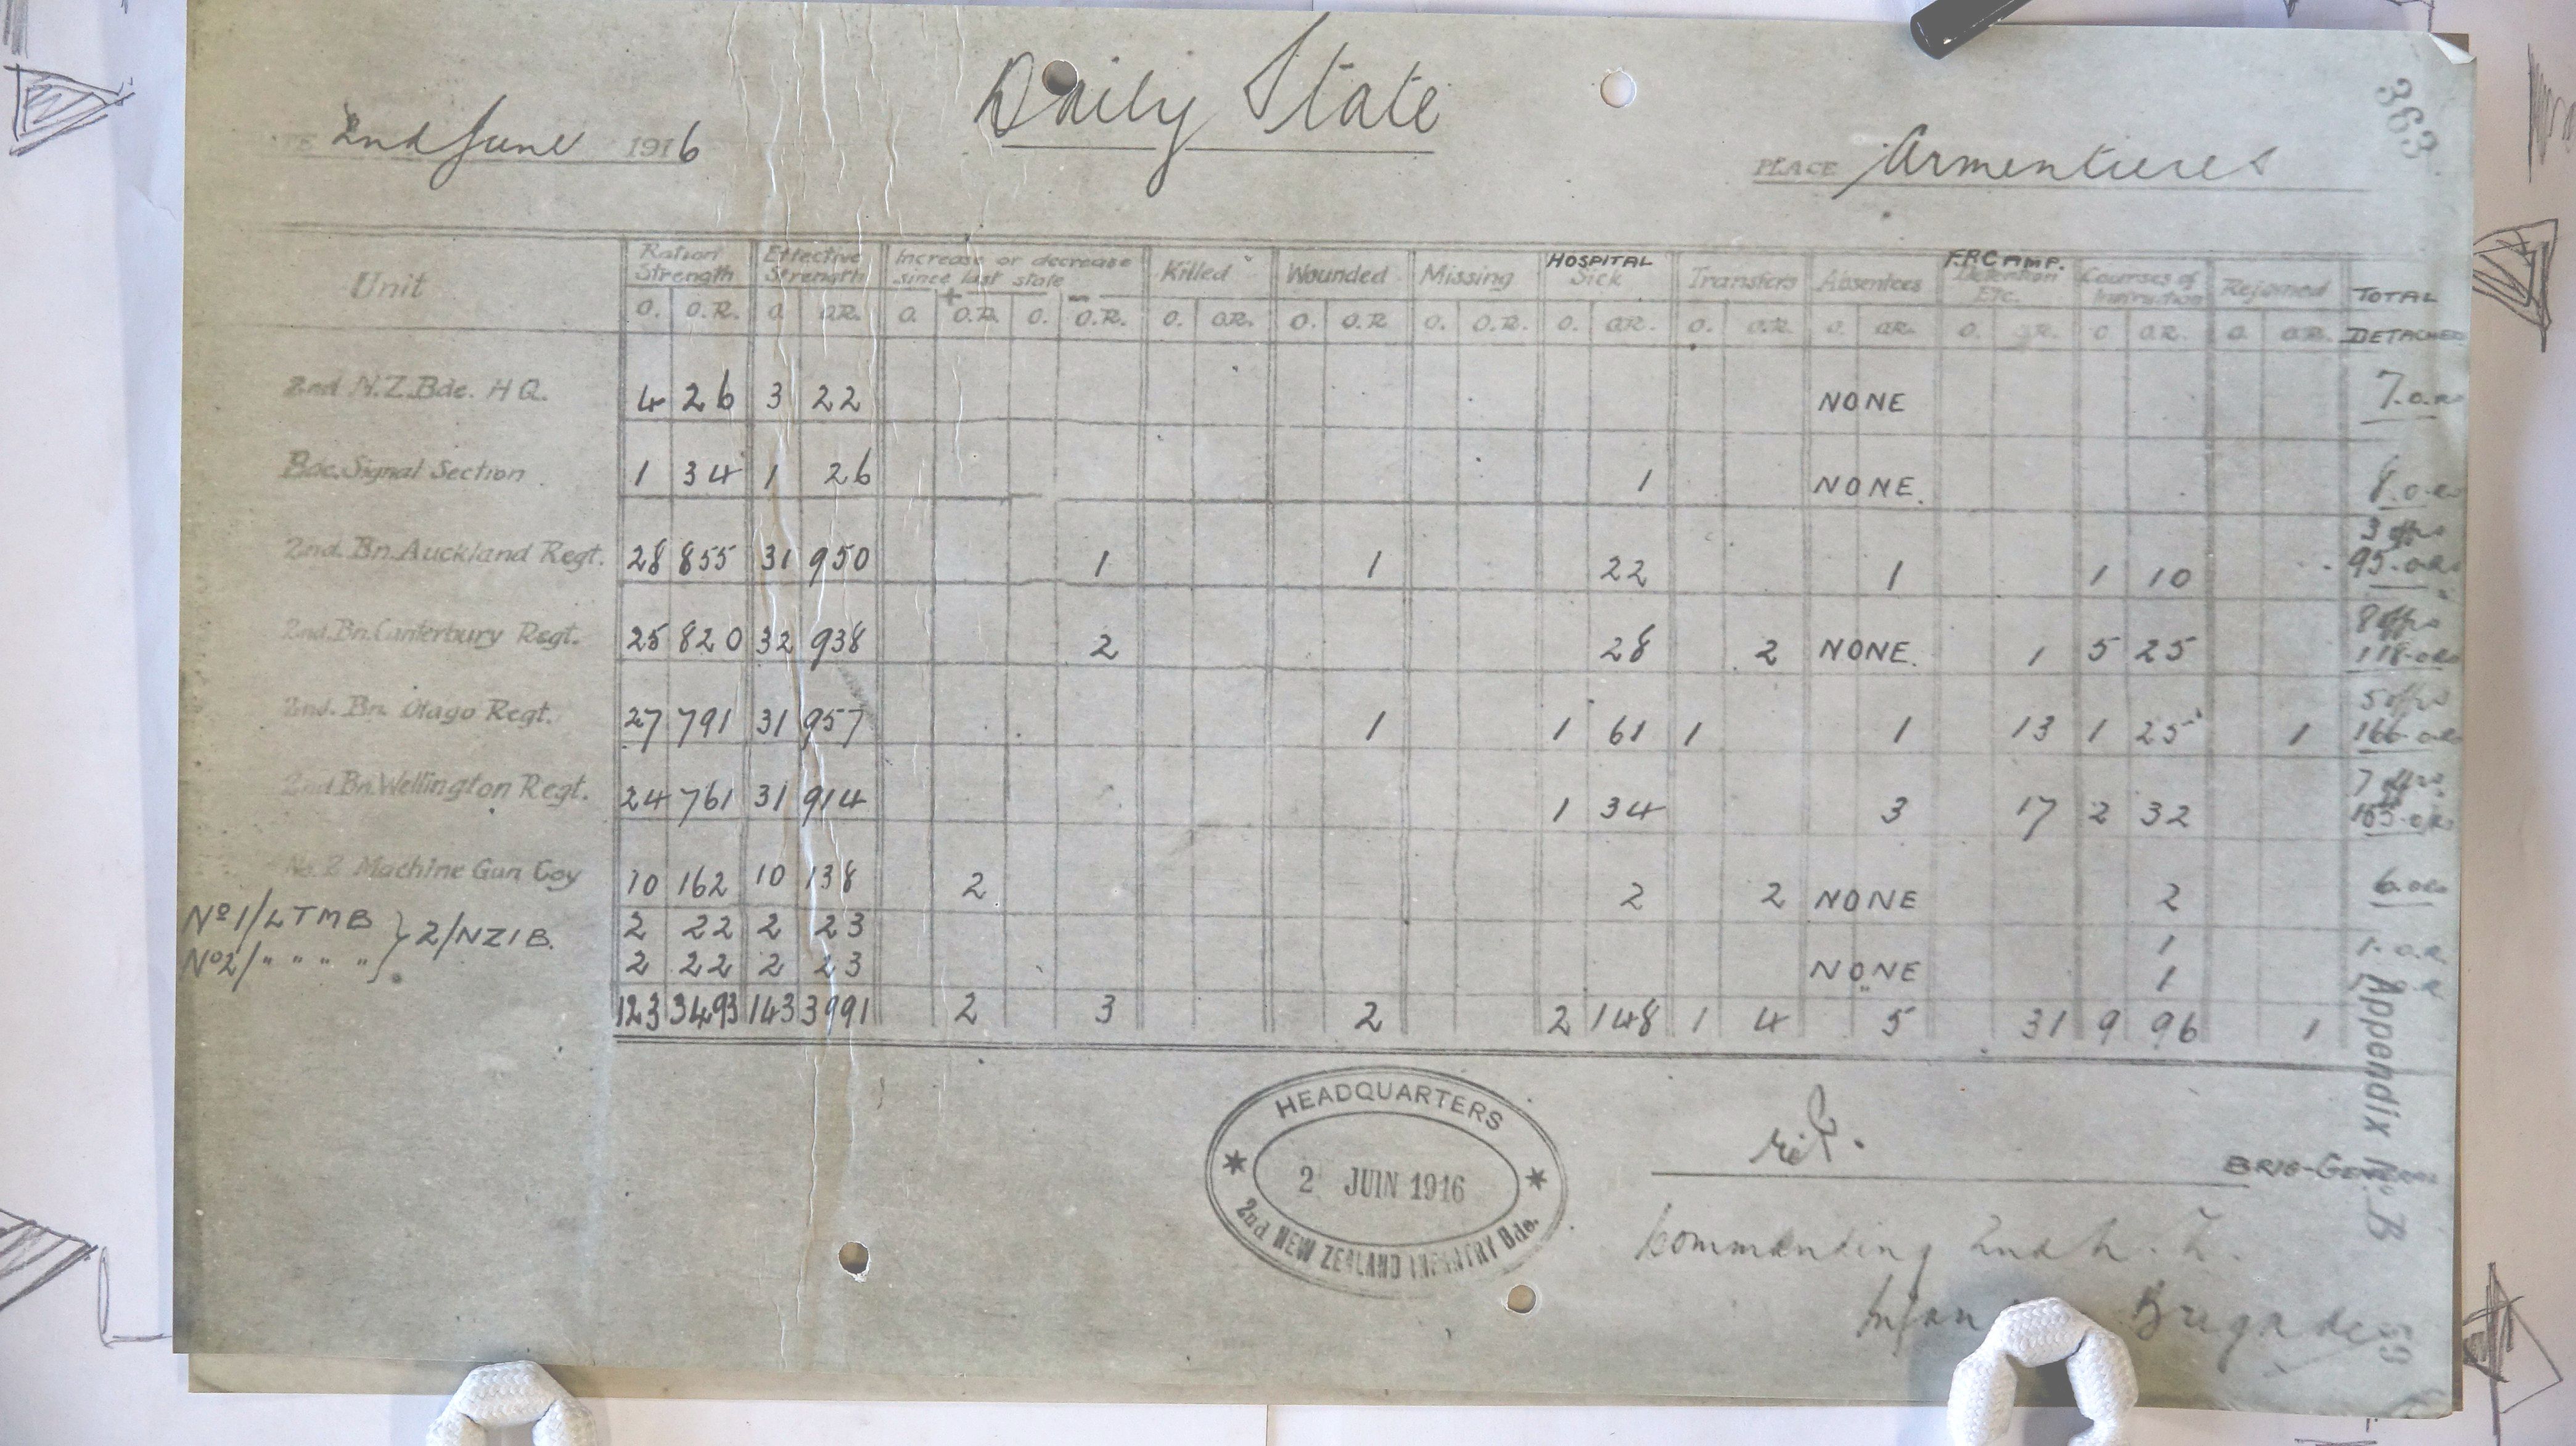 Daily State
363
2nd June 1916
PLACE Armentieres
Unit
Ration Strength
Effective Strength
Increase or decrease since last state
+ -
Killed
Wounded
Missing
HOSPITAL Sick
Transfers
Absentees
F.P.CAMP. Detention Etc.
Courses of Instruction
Rejoined
TOTAL DETACHED
O. O.R. O. O.R. O. O.R. O. O.R. O. O.R. O. O.R. O. O.R. O. O.R. O. O.R. O. O.R. O. O.R. O O.R. O. O.R.
2nd N.Z.Bde. H Q. 4 26 3 22 NONE 7.o.rs
Bde. Signal Section 1 34 1 26 1 NONE. 8.o.rs
2nd. Bn. Auckland Regt. 28 855 31 950 1 1 22 1 1 10 3 offrs 95.o.rs
2nd. Bn. Canterbury Regt. 25 820 32 938 2 28 2 NONE. 1 5 25 8 offrs 118.o.rs
2nd. Bn. Otago Regt. 27 791 31 957 1 1 61 1 1 13 1 25 1 5 offrs 166.o.rs
2nd Bn. Wellington Regt. 24 761 31 914 1 34 3 17 2 32 7 offrs
No. 2 Machine Gun Coy 10 162 10 138 2 2 2 NONE 2 6.o.rs
Nº1/LTMB } 2/NZIB. 2 22 2 23 1 1.o.R
Nº2/" " " " 2 22 2 23 NONE 1
123 3493 143 3991 2 3 2 2 148 1 4 5 31 9 96 1
Appendix No. B
HEADQUARTERS
2 JUIN 1916
2nd NEW ZEALAND INFANTRY Bde.
BRIG-GENERAL
Commanding 2nd N. Z.
Brigade
59